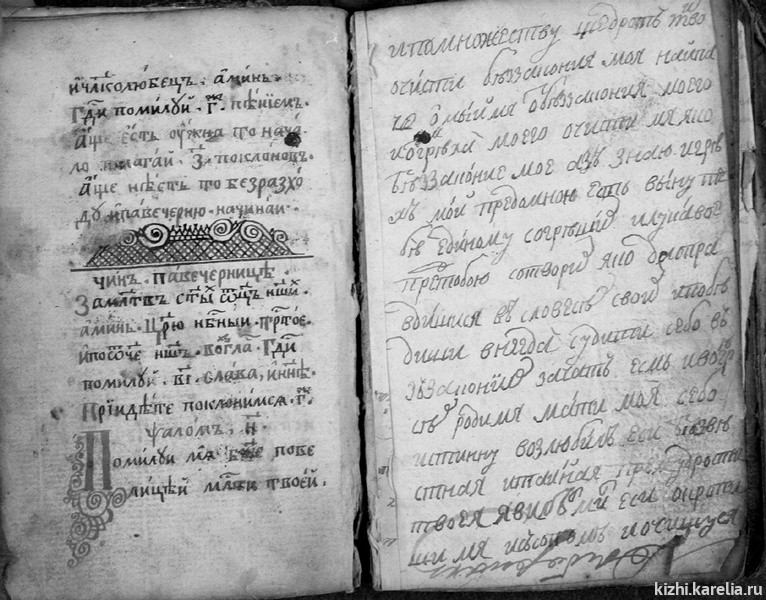 и҆ чл҃колюбецъ. а҆минь.
Гд҇и помилуй. г҃.
а҆ще есть
ло полагаи. з҃. поклоновъ.
а҆ще нѣсть то без разхо
ду и павечерню начинаи.
чинъ павечерницѣ
За мл҃твъ ст҃ы о҆ц҃ъ нш҃и
аминь. Цр҃ю нб҃ный.
по ѻ҆ч҃е нш҃ъ. Гд҇и
помилуй. в҃і. слава, и ннѣ.
Приидѣте поклонимся. г҃.
ѱалом. н҃.
Помилуи мя бж҃е по ве
лицѣй мл҃сти твоей.
и по множеству щедротъ тво
очисти беззакония моя наипа
омыимя беззакония моего
моего очисти мя яко
беззаконие мое азъ знаю и грѣ
хъ мой предомною есть выну те
бѣ единому согрѣшил и лукавое
пред тобою сотворих яко да опра
вдишися в словесѣх своих и побѣ
диши внегда судити
законии зачатъ есмь и во грѣ
сѣх роди мя мати моя себо
истинну возлюбилъ еси безвѣ
стная и тайная премудрости
твоея явилъ ми еси окропи
ши мя исопомъ и очищуся
kizhi.karelia.ru